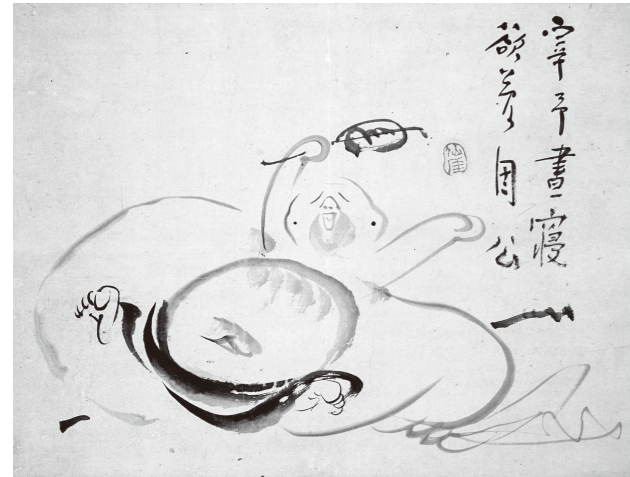 宰予晝寝
欲夢周公
仙厓